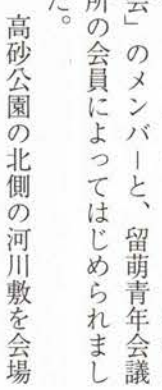 会」のメンバーと、留萌青年会議
所の会員によってはじめられまし
た。
高砂公園の北側の河川敷を会場